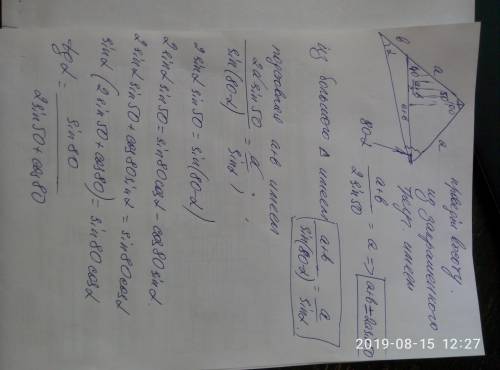 проведём высоту.
из заштрихованного
треуг. имеем
a
a
b
a+b
α
80-α
a+b / 2sin50 = a => a+b=2asin50
из большого Δ имеем a+b / sin(80-α) = a / sinα.
приравняв a+b имеем
2asin50 / sin(80-α) = a / sinα;
2sinα sin50 = sin(80-α)
2sinα sin50 = sin80cosα - cos80sinα.
2sinα sin50 + cos80sinα = sin80cosα
sinα (2sin50 + cos80) = sin80cosα
tgα = sin80 / 2sin50+cos80
2019-08-15 12:27